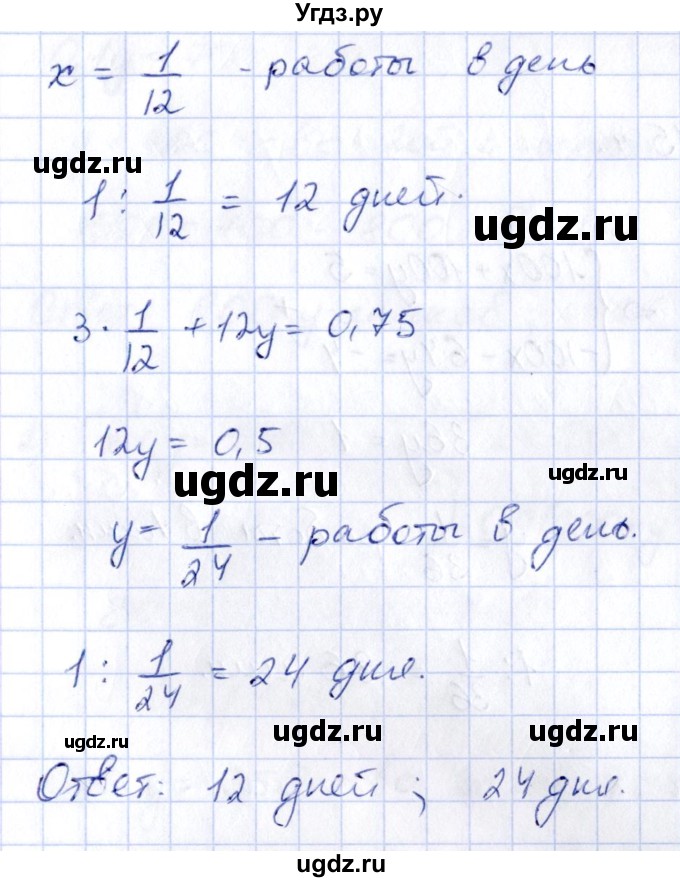 Угдз.ру
x = 1/12 - работы в день
ugdz.ru
1 : 1/12 = 12 дней.
ugdz.ru
3 · 1/12 + 12y = 0,75
12y = 0,5
ugdz.ru
ugdz.ru
y = 1/24 - работы в день.
1 : 1/24 = 24 дня.
ugdz.ru
ugdz.ru
Ответ: 12 дней; 24 дня.
ugdz.ru